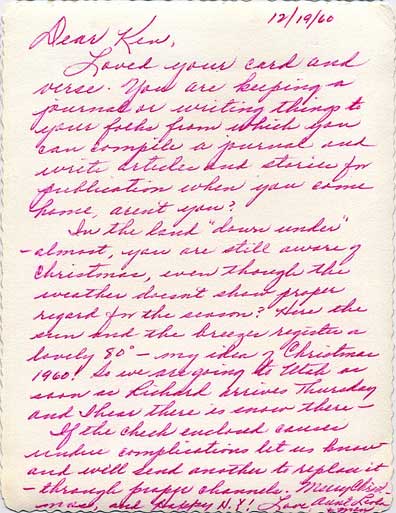 12/19/60
Dear Ken,
Loved your card and
verse. You are keeping a
journal or writing things to
your folks from which you
can compile a journal and
write articles and stories for
publication when you come
home, aren't you?
In the land "down under"
- almost, you are still aware of
Christmas, even though the
weather doesn't show proper
regard for the season? Here the
sun and the breezes register a
lovely 80° - my idea of Christmas
1960! So we are going to Utah as
soon as Richard arrives Thursday
and I hear there is snow there -
If the check enclosed causes
undue complications let us know
and we'll send another to replace it
- through proper channels. Merry Christ-
mas, and Happy N.Y! Love Aunt Leola